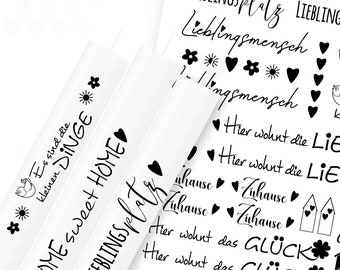 LIEBLINGSplatz
LIEBLINGS
Lieblingsmensch
Lieblingsmensch
Hier wohnt die LIE
Hier wohnt die LIE
Zuhause
Zuhause
Zuhause
Zuhause
Hier wohnt das GLÜCK
Hier wohnt das GLÜCK
Es sind die
kleinen DINGE
HOME sweet HOME
LIEBLINGSplatz